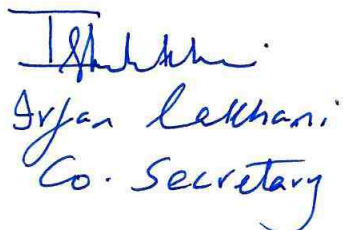 Irfan Lakhani
Co. Secretary